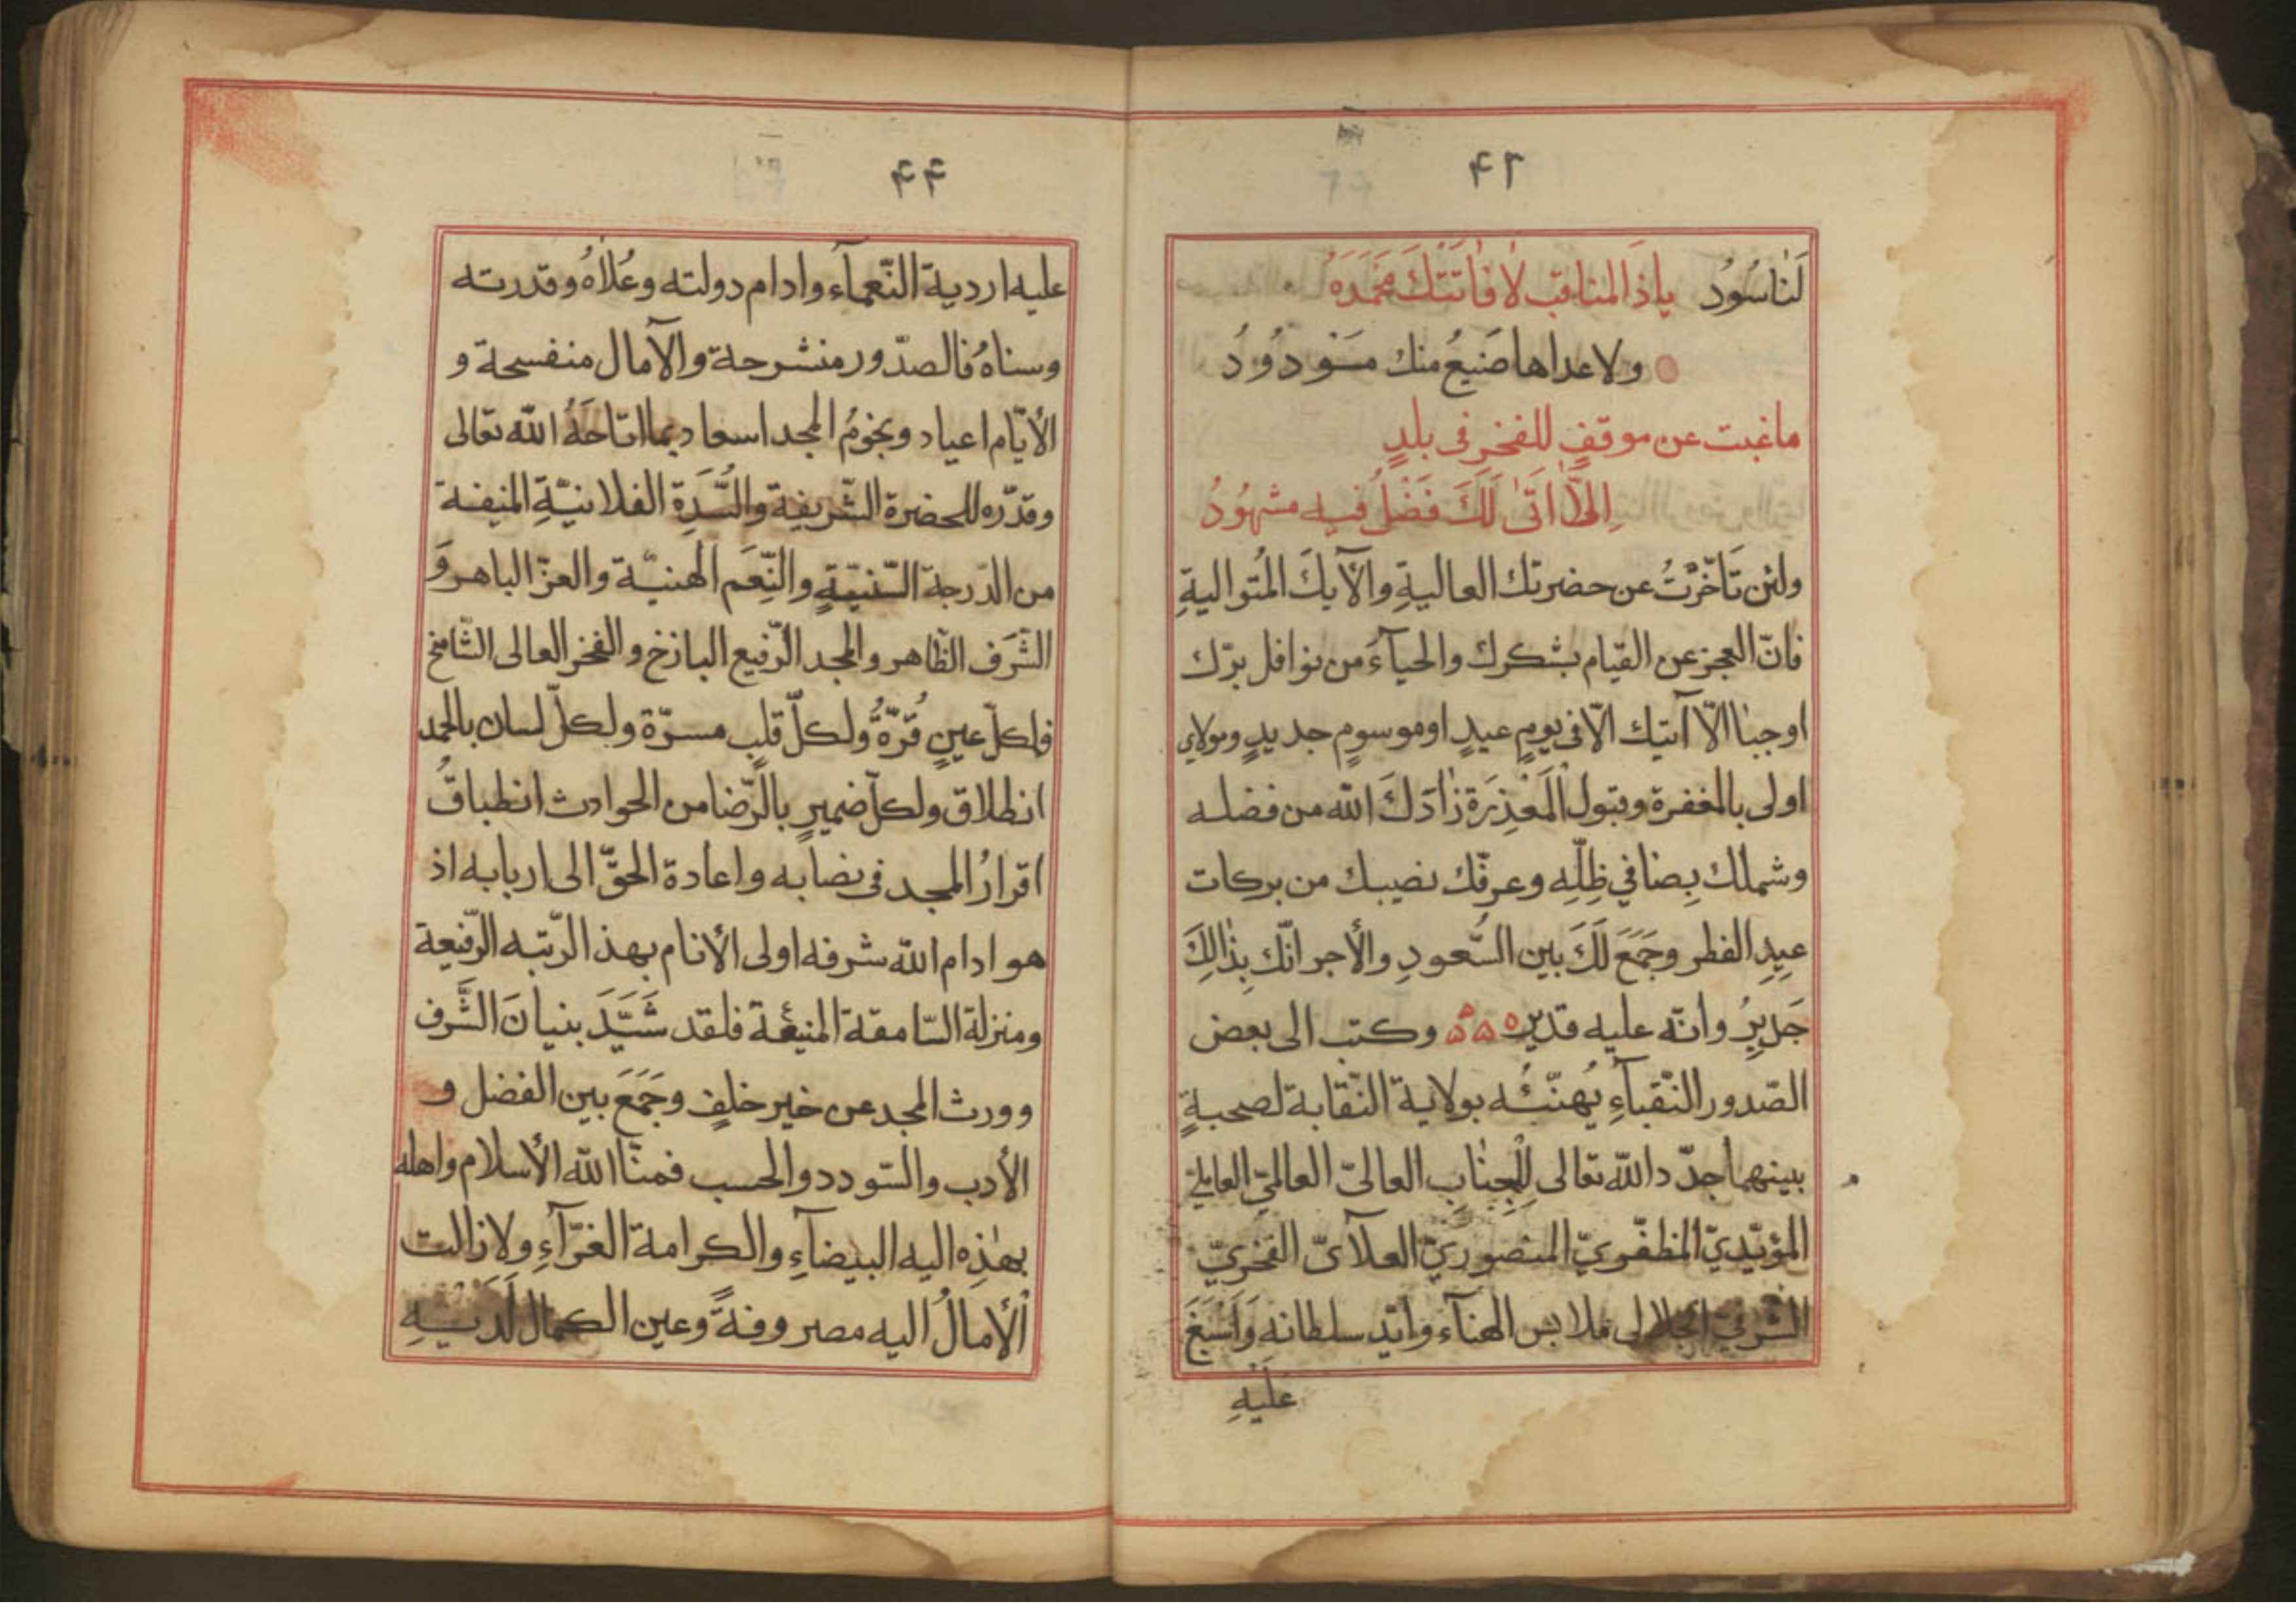 ۴۳
لَنٰا سُوُدُ ياذَا المناقب لا فٰاتَتْكَ مَحْمَدَهُ
ولا عداها صَنيعُ منك مَسَودُودُ
ماغبت عن موقفٍ للفخر فى بلدٍ
اِلَّا اَتَىٰ لَكَ فَضْلُ فيه مشهُودُ
ولئن تَأخّرْتُ عن حضرتك العاليةِ والآيكَ المُتواليةِ
فانّ العجز عن القيام بشكرك والحيآءَ من نوافل برّك
اوجبٰا الّا آتيك الّا فى يومٍ عيدٍ اوموسومٍ جديدٍ ومولاي
اولى بالمغفرة وقبول الْمَعْذِرَة زٰادَكَ الله من فضله
وشملك بِضافي ظِلِّهِ وعرفّك نصيبك من بركات
عيِدِ الفطر وجَمَعَ لَكَ بين السُّعودِ والأجر انّك بِذٰالِكَ
جَديرٌ وانّه عليه قدير ۵۵۵۵ وكتب الى بعض
الصّدور النّقباءِ يُهنّئُه بولاية النّقابة لصحبةٍ
بينهما جدّد الله تعالى لِلْجِنٰابِ العالىّ العالمىّ العاملىّ
المؤيّديّ المظفّريّ المنصوريّ العلآئىّ الفخريّ
الشرفىّ الجلالى ملابس الهنآء وايّد سلطانه وَاَسْبَغَ
عَلَيْهِ
۴۴
عليه اردية النّعمآء وادام دولته وعُلاٰهُ وقدرته
وسناهُ فالصدّور منشرحة والآمال منفسحة و
الأيّام اعياد ونجومُ المجد اسعاد بما اتاحَهُ الله تعالى
وقدّره للحضرة الشّريفة والسُّدَةِ الفلانيّةِ المنيفة
من الدّرجة السّنيّةِ والنِّعَم الهنيّة والعزّ الباهر وَ
الشّرَف الظّاهر والمجد الرّفيع الباذخ والفخر العالى الشّامخ
فلكلّ عينٍ قُرّةٌ ولكلّ قلبٍ مسرّة ولكلّ لسان بالحمد
انطلاق ولكلّ ضميرٍ بالرّضا من الحوادث انطباقُ
اقرارُ المجد فى نصابه واعادة الحقّ الى اربابه اذ
هو ادام الله شرفه اولى الأنام بهذ الرّتبه الرّفيعة
ومنزلة السّامقة المنيعة فلقد شَيَّدَ بنيانَ الشَّرف
وورث المجد عن خير خلفٍ وجَمَعَ بين الفضل و
الأدب والسّودد والحسب فمنّا الله الأسلام واهله
بهٰذِه اليه البيضآءِ والكرامة الغرّآءِ ولا زالت
الأمالُ اليه مصروفةً وعين الكمال لَدَيْهِ